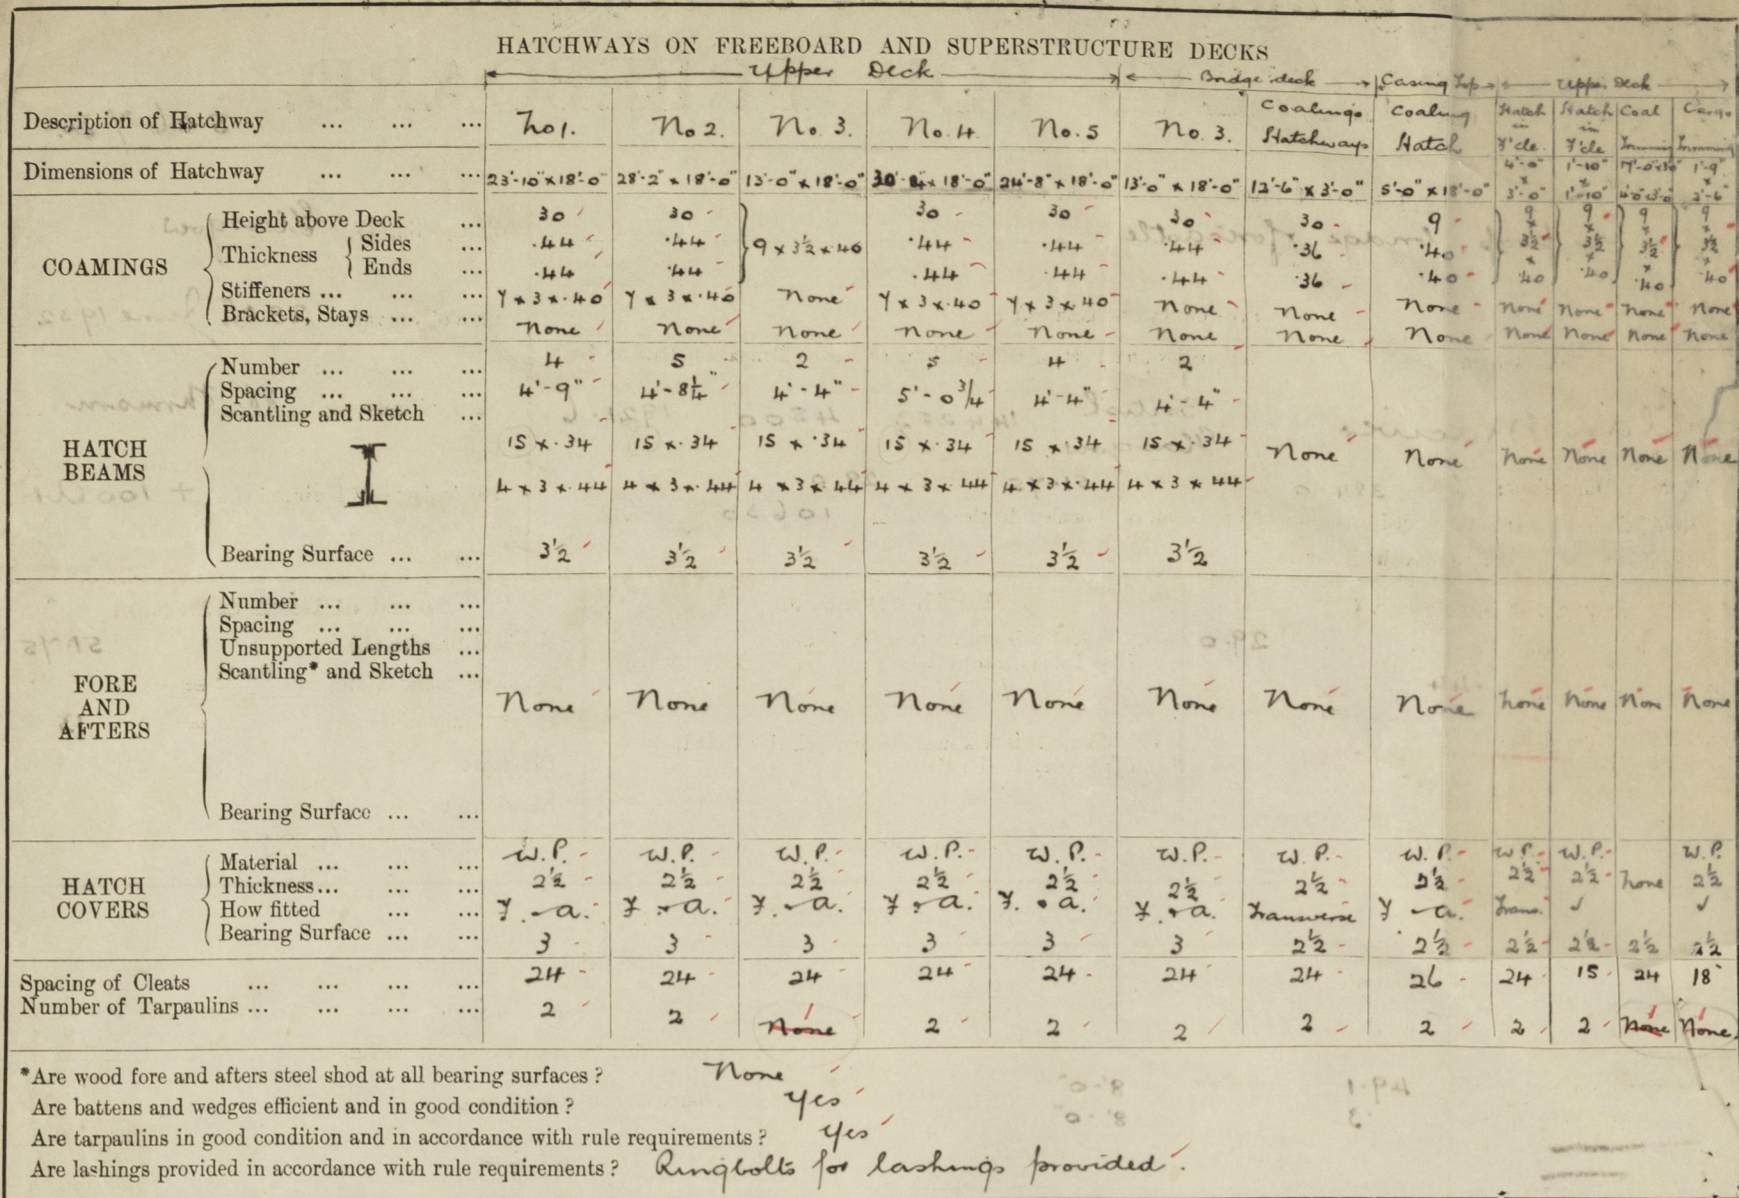 HATCHWAYS ON FREEBOARD AND SUPERSTRUCTURE DECKS
Upper Deck Bridge deck Casing Top Upper Deck
Description of Hatchway ... ... ... No 1. No 2. No. 3. No. 4. No. 5 No. 3. Coalings Hatchways Coaling Hatch Hatch in F'cle Hatch in F'cle Coal Trimming Cargo Trimming
Dimensions of Hatchway ... ... ... 23'-10" x 18'-0" 28'-2" x 18'-0" 13'-0" x 18'-0" 30'- x 18'-0" 24'-8" x 18'-0" 13'-0" x 18'-0" 12'-6" x 3'-0" 5'-0" x 18'-0" 4'-0" x 3'-0" 1'-10" x 1'-10" 1'-9" x 2'-6"
COAMINGS
Height above Deck ... 30 30 9 x 3½ x 40 30 30 30 30 9 9 x 3½ x .40 9 x 3½ x .40 9 x 3½ x .40 9 x 3½ x .40
Thickness Sides ... .44 .44 .44 .44 .44 .36 .40
Ends ... .44 .44 .44 .44 .44 .36 .40
Stiffeners ... ... ... 7 x 3 x .40 7 x 3 x .40 None 7 x 3 x .40 7 x 3 x .40 None None None None None None None
Brackets, Stays ... ... None None None None None None None None None None None None
HATCH BEAMS
Number ... ... ... 4 5 2 5 4 2
Spacing ... ... ... 4'-9" 4'-8¼" 4'-4" 5'-0¾ 4'-4" 4'-4"
Scantling and Sketch ...
15 x .34 15 x .34 15 x .34 15 x .34 15 x .34 15 x .34 None None None None None None
4 x 3 x .44 4 x 3 x .44 4 x 3 x 44 4 x 3 x 44 4 x 3 x .44 4 x 3 x 44
Bearing Surface ... ... 3½ 3½ 3½ 3½ 3½ 3½
FORE AND AFTERS
Number ... ... ...
Spacing ... ... ...
Unsupported Lengths ...
Scantling* and Sketch ...
None None None None None None None None None None None None
Bearing Surface ... ...
HATCH COVERS
Material ... ... ... W.P. W.P. W.P. W.P. W.P. W.P. W.P. W.P. W.P. W.P. W.P.
Thickness ... ... ... 2½ 2½ 2½ 2½ 2½ 2½ 2½ 2½ 2½ 2½ None 2½
How fitted ... ... F. & a. F. & a. F. & a. F. & a. F. & a. F. & a. Transverse F. & a. Trans. ✓ ✓
Bearing Surface ... ... 3 3 3 3 3 3 2½ 2½ 2½ 2½ 2½ 2½
Spacing of Cleats ... ... ... ... 24 24 24 24 24 24 24 26 24 15 24 18
Number of Tarpaulins ... ... ... ... 2 2 None 2 2 2 2 2 2 2 None None
*Are wood fore and afters steel shod at all bearing surfaces ? None
Are battens and wedges efficient and in good condition ? Yes
Are tarpaulins in good condition and in accordance with rule requirements ? Yes
Are lashings provided in accordance with rule requirements ? Ringbolts for lashings provided.